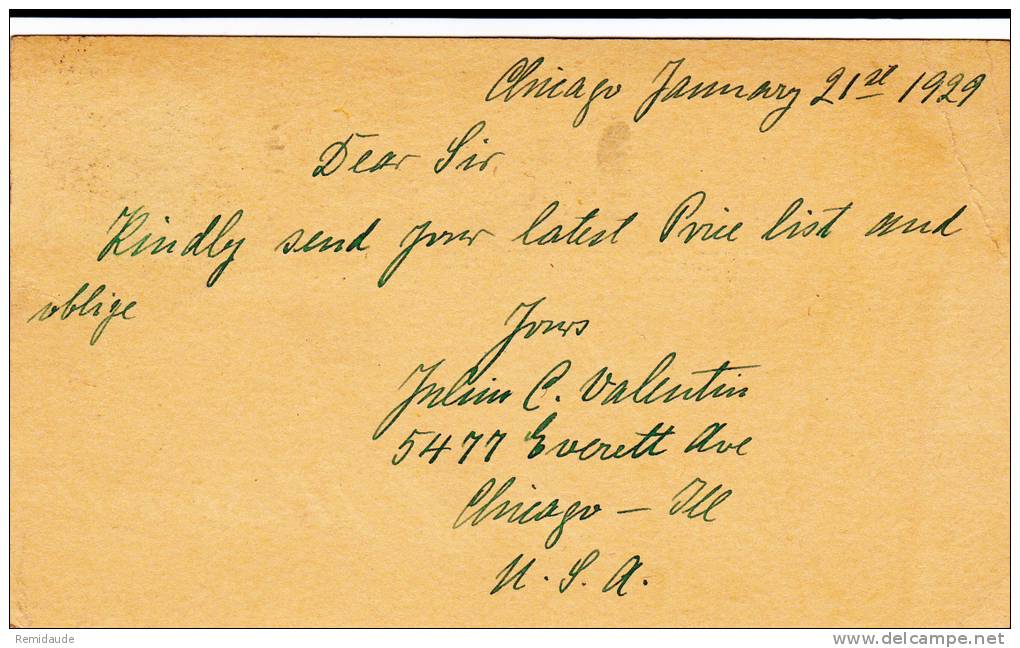 Chicago January 21st 1929
Dear Sir
Kindly send your latest Price list and
oblige
Yours
C. Valentin
5477 Everett Ave
Chicago – Ill
U. S. A.
Remidaude
http://www.delcampe.net